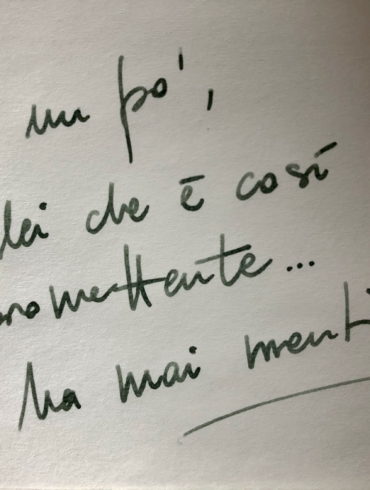 un po',
lei che è così
promettente...
ha mai menti